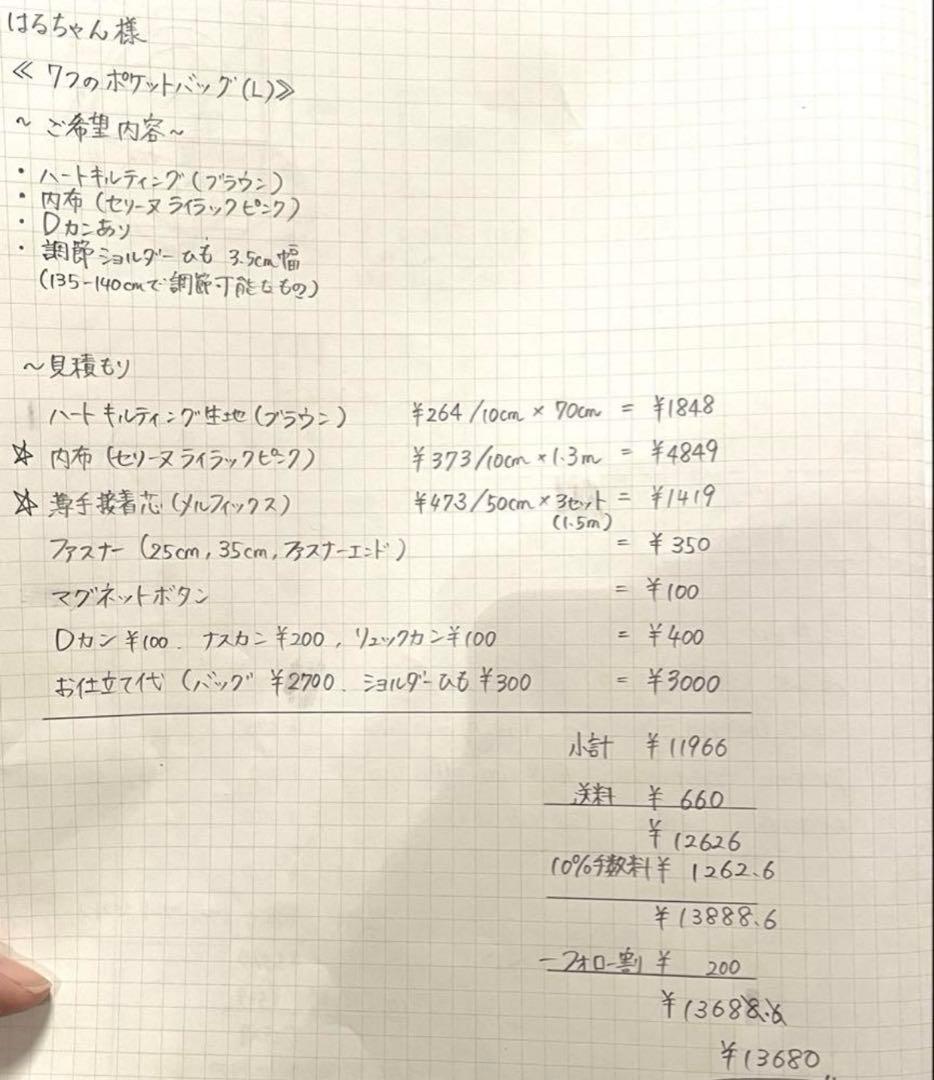 はるちゃん様
≪ 7つのポケットバッグ(L)≫
~ ご希望内容~
・ハートキルティング(ブラウン)
・内布(セリーヌライラックピンク)
・Dカンあり
・調節ショルダーひも 3.5cm幅
(135-140cmで調節可能なもの)
~見積もり
ハートキルティング生地(ブラウン) ¥264/10cm × 70cm = ¥1848
☆ 内布(セリーヌライラックピンク) ¥373/10cm × 1.3m = ¥4849
☆ 薄手接着芯(メルフィックス) ¥473/50cm × 3セット = ¥1419
(1.5m)
ファスナー(25cm, 35cm, ファスナーエンド) = ¥350
マグネットボタン = ¥100
Dカン¥100. ナスカン¥200, リュックカン¥100 = ¥400
お仕立て代(バッグ ¥2700. ショルダーひも¥300 = ¥3000
小計 ¥11966
送料 ¥ 660
¥12626
10%手数料¥ 1262.6
¥13888.6
-フォロー割 ¥ 200
¥13688.6
¥13680